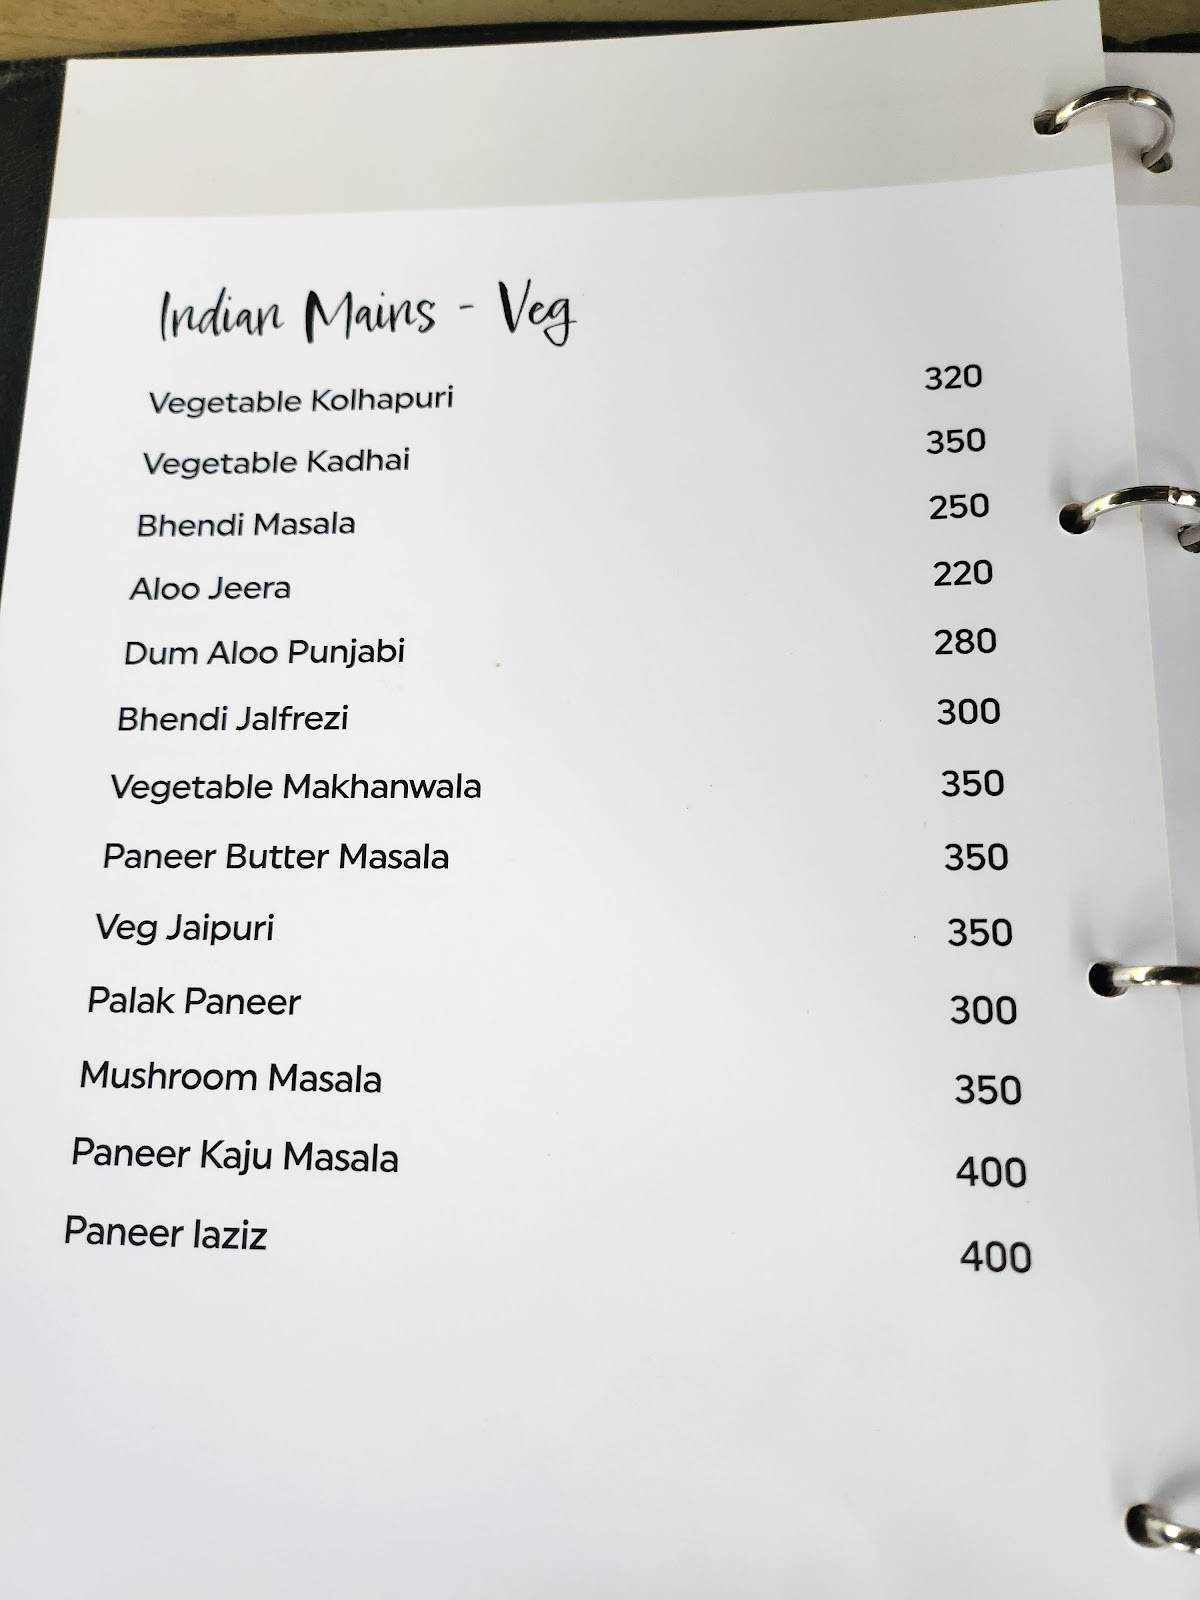 Indian Mains - Veg
Vegetable Kolhapuri 320
Vegetable Kadhai 350
Bhendi Masala 250
Aloo Jeera 220
Dum Aloo Punjabi 280
Bhendi Jalfrezi 300
Vegetable Makhanwala 350
Paneer Butter Masala 350
Veg Jaipuri 350
Palak Paneer 300
Mushroom Masala 350
Paneer Kaju Masala 400
Paneer laziz 400